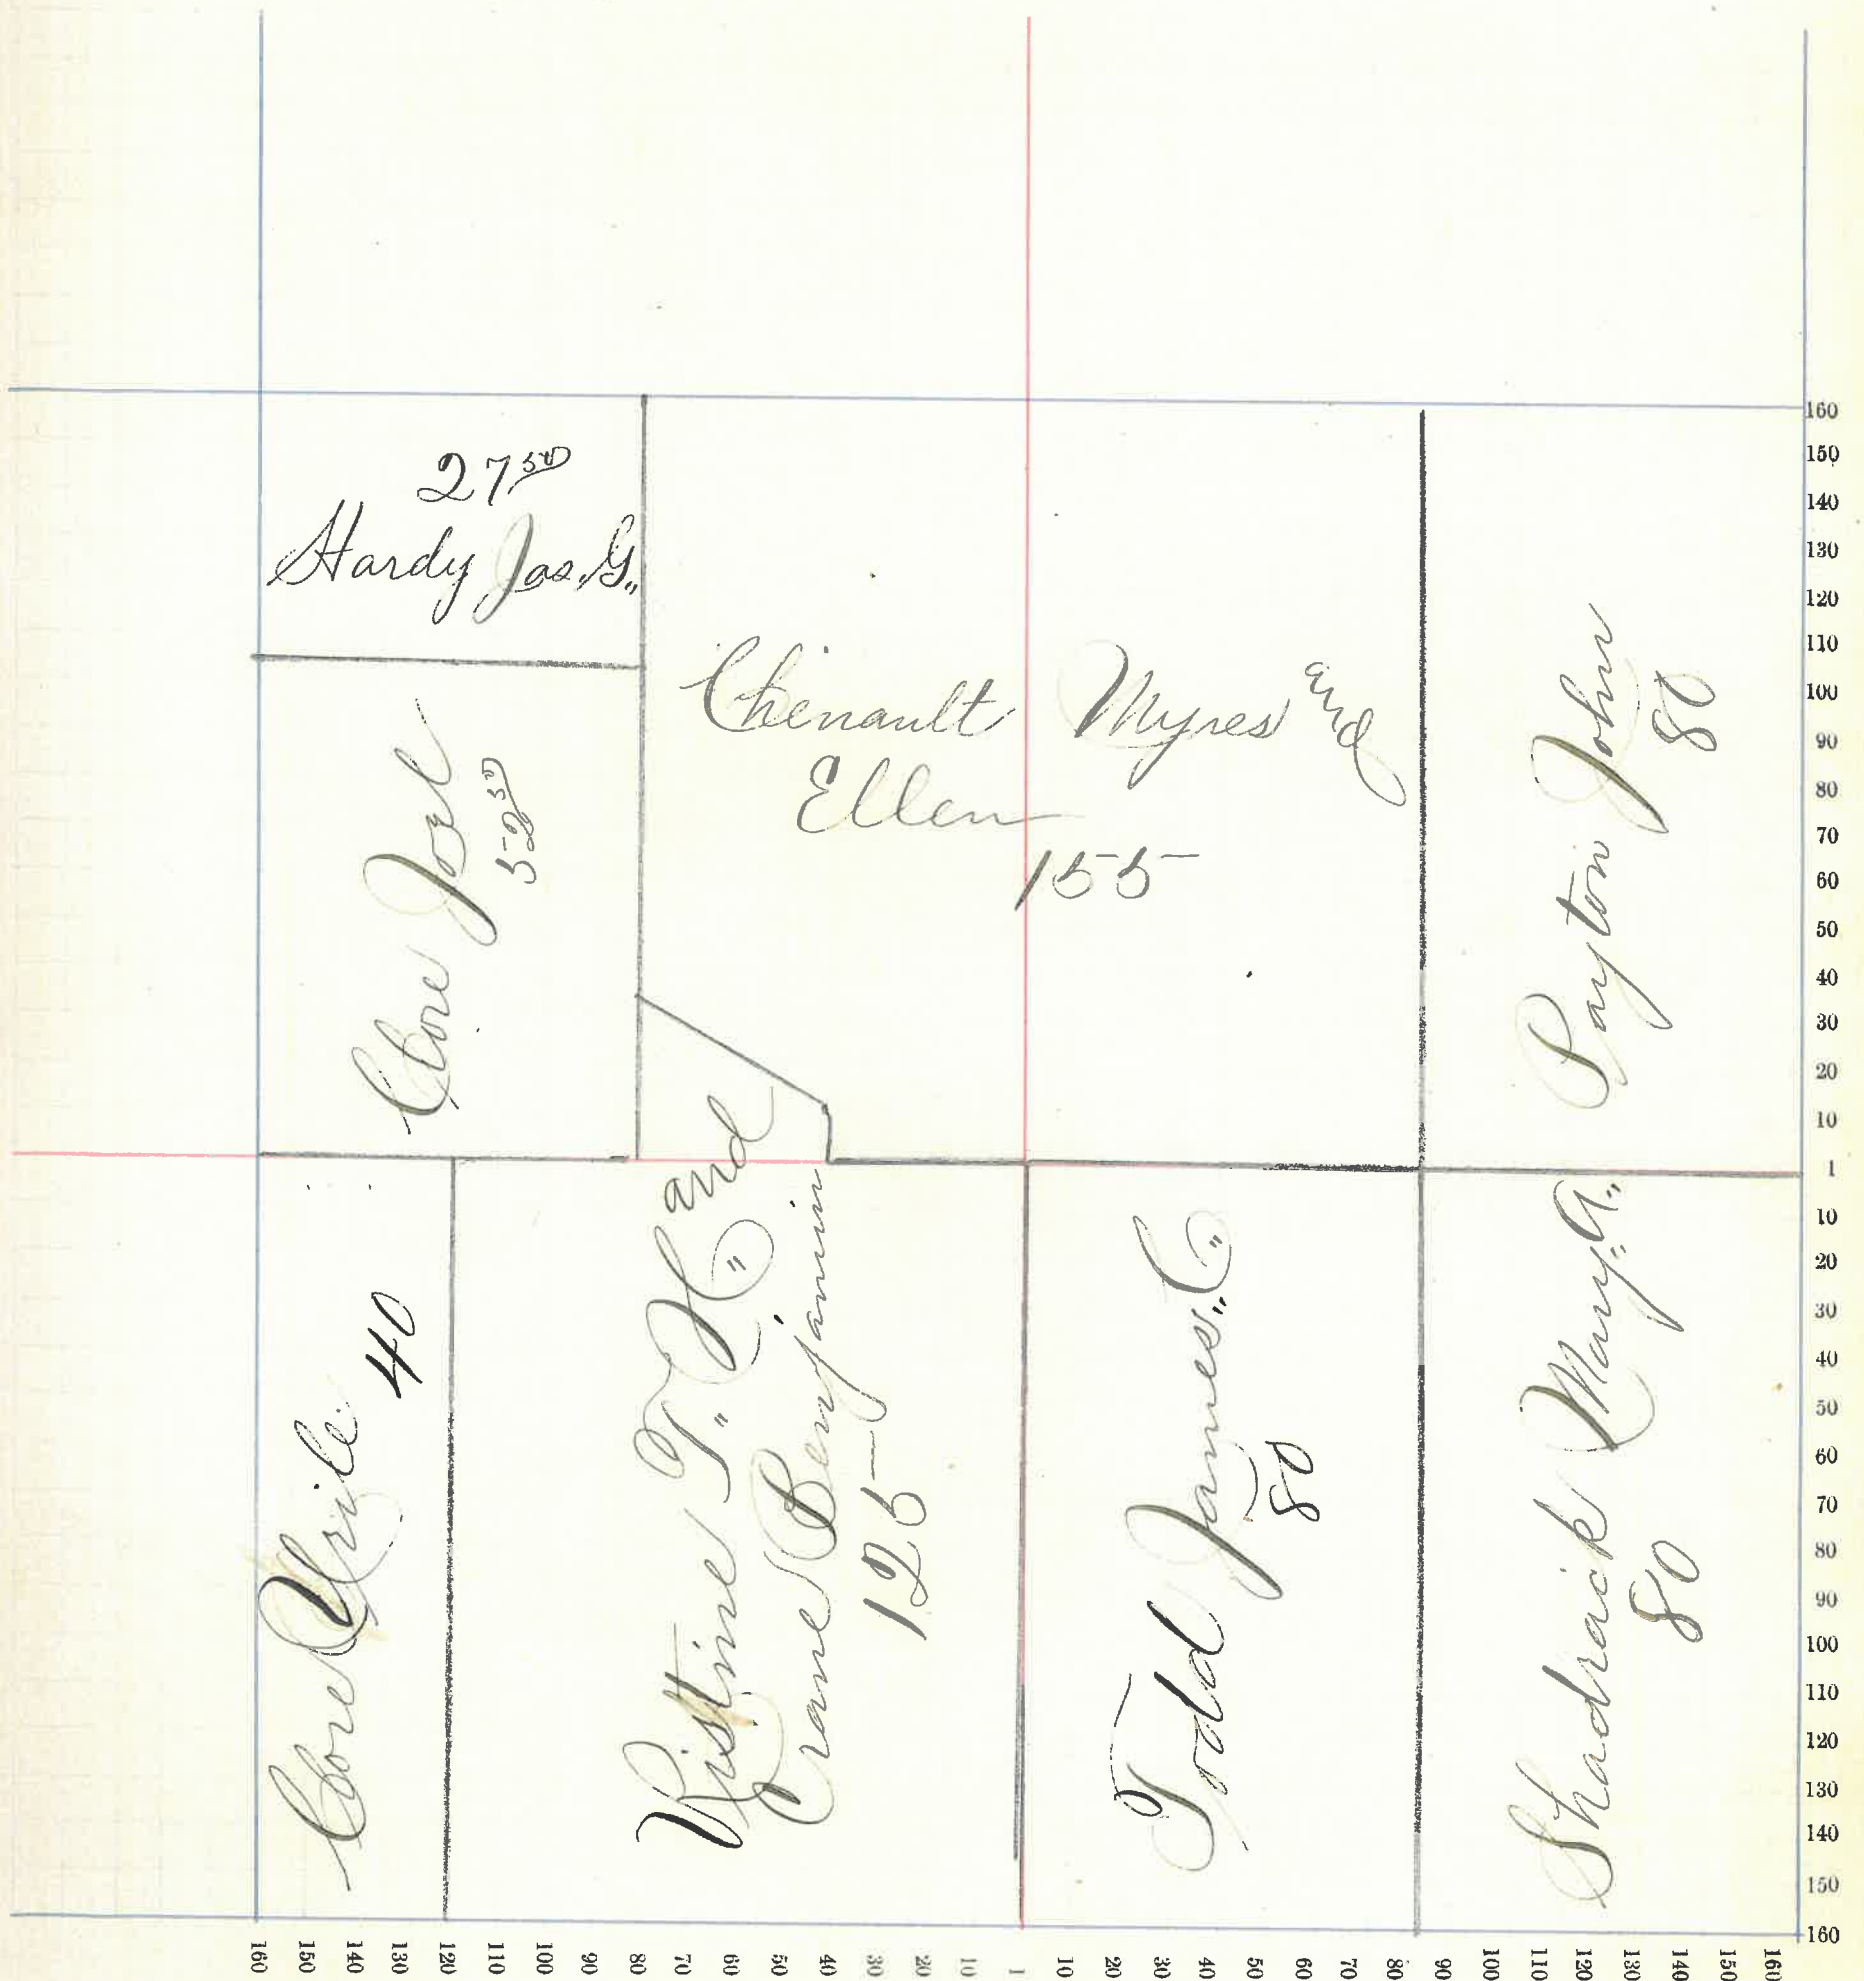 27 50
Hardy Jas. G.
Clore Joel
52 50
Chenault Myres and
Ellen
155
Payton John
80
Clore Urile
40
Ristine T. H. and
Crane Benjamin
125
Todd James C
80
Shadrack Mary A.
80
160
150
140
130
120
110
100
90
80
70
60
50
40
30
20
10
1
10
20
30
40
50
60
70
80
90
100
110
120
130
140
150
160
160 150 140 130 120 110 100 90 80 70 60 50 40 30 20 10 1 10 20 30 40 50 60 70 80 90 100 110 120 130 140 150 160